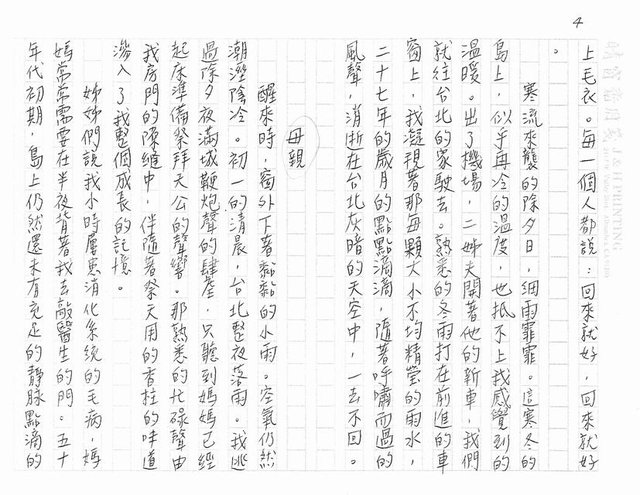 4
上毛衣。每一個人都說：回來就好，回來就好
。
寒流來襲的除夕日，細雨霏霏。這寒冬的
島上，似乎再冷的溫度，也抵不上我感覺到的
溫暖。出了機場，二姊夫開著他的新車，我們
就往台北的家駛去。熟悉的冬雨打在前進的車
窗上，我凝視著那每顆大小不均精瑩的雨水，
二十七年的歲月的點點滴滴，隨著呼嘯而過的
風聲，消逝在台北灰暗的天空中，一去不回。
母親
醒來時，窗外下著黏黏的小雨。空氣仍然
潮溼陰冷。初一的清晨，台北整夜落雨。我逃
過除夕夜滿城鞭炮聲的肆虐，只聽到媽媽已經
起床準備祭拜天公的聲響。那熟悉的忙碌聲由
我房門的隙縫中，伴隨著祭天用的香柱的味道
滲入了我整個成長的記憶。
姊姊們說我小時屢患消化系統的毛病，媽
媽常常需要在半夜背著我去敲醫生的門。五十
年代初期，島上仍然還未有充足的靜脈點滴的